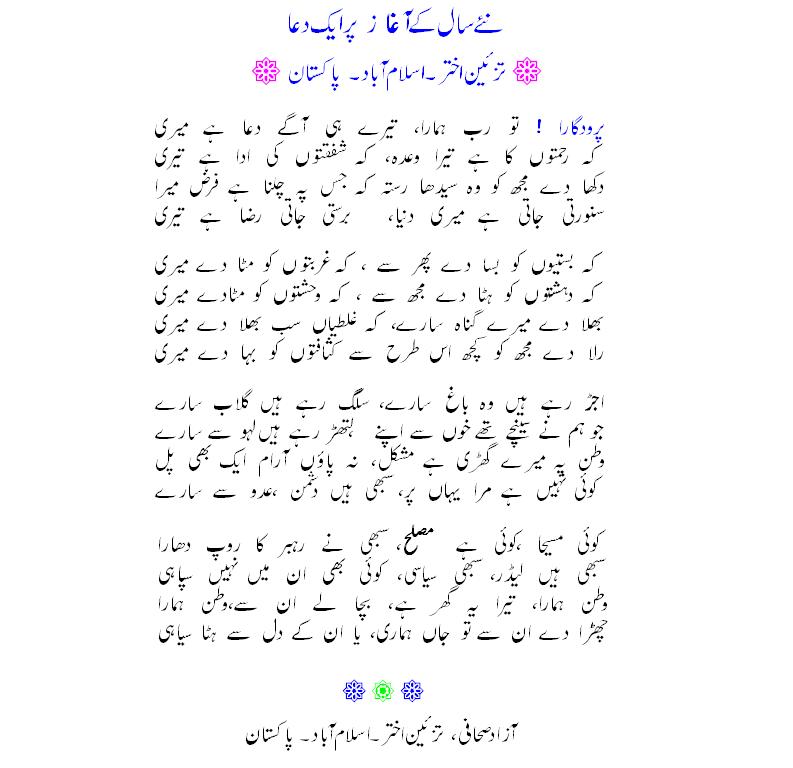 نئے سال کے آغا ز پر ایک دعا
تزئین اختر ۔اسلام آباد۔ پاکستان
پرودگارا ! تو رب ہمارا، تیرے ہی آگے دعا ہے میری
کہ رحمتوں کا ہے تیرا وعدہ، کہ شفقتوں کی ادا ہے تیری
دکھا دے مجھ کو وہ سیدھا رستہ کہ جس پہ چلنا ہے فرض میرا
سنورتی جاتی ہے میری دنیا، برستی جاتی رضا ہے تیری
کہ بستیوں کو بسا دے پھر سے ، کہ غربتوں کو مٹا دے میری
کہ دہشتوں کو ہٹا دے مجھ سے ، کہ وحشتوں کو مٹادے میری
بھلا دے میرے گناہ سارے، کہ غلطیاں سب بھلا دے میری
رلا دے مجھ کو کچھ اس طرح سے کثافتوں کو بہا دے میری
اجڑ رہے ہیں وہ باغ سارے، سلگ رہے ہیں گلاب سارے
جو ہم نے سینچے تھے خوں سے اپنے لتھڑ رہے ہیں لہو سے سارے
وطن پہ میرے گھڑی ہے مشکل، نہ پاؤں آرام ایک بھی پل
کوئی نہیں ہے مرا یہاں پر، سبھی ہیں دشمن ،عدو سے سارے
کوئی مسیحا ،کوئی ہے مصلح، سبھی نے رہبر کا روپ دھارا
سبھی ہیں لیڈر، سبھی سیاسی، کوئی بھی ان میں نہیں سپاہی
وطن ہمارا، تیرا یہ گھر ہے، بچا لے ان سے،وطن ہمارا
چھڑا دے ان سے تو جاں ہماری، یا ان کے دل سے ہٹا سیاہی
آزاد صحافی، تزئین اختر ۔اسلام آباد۔ پاکستان